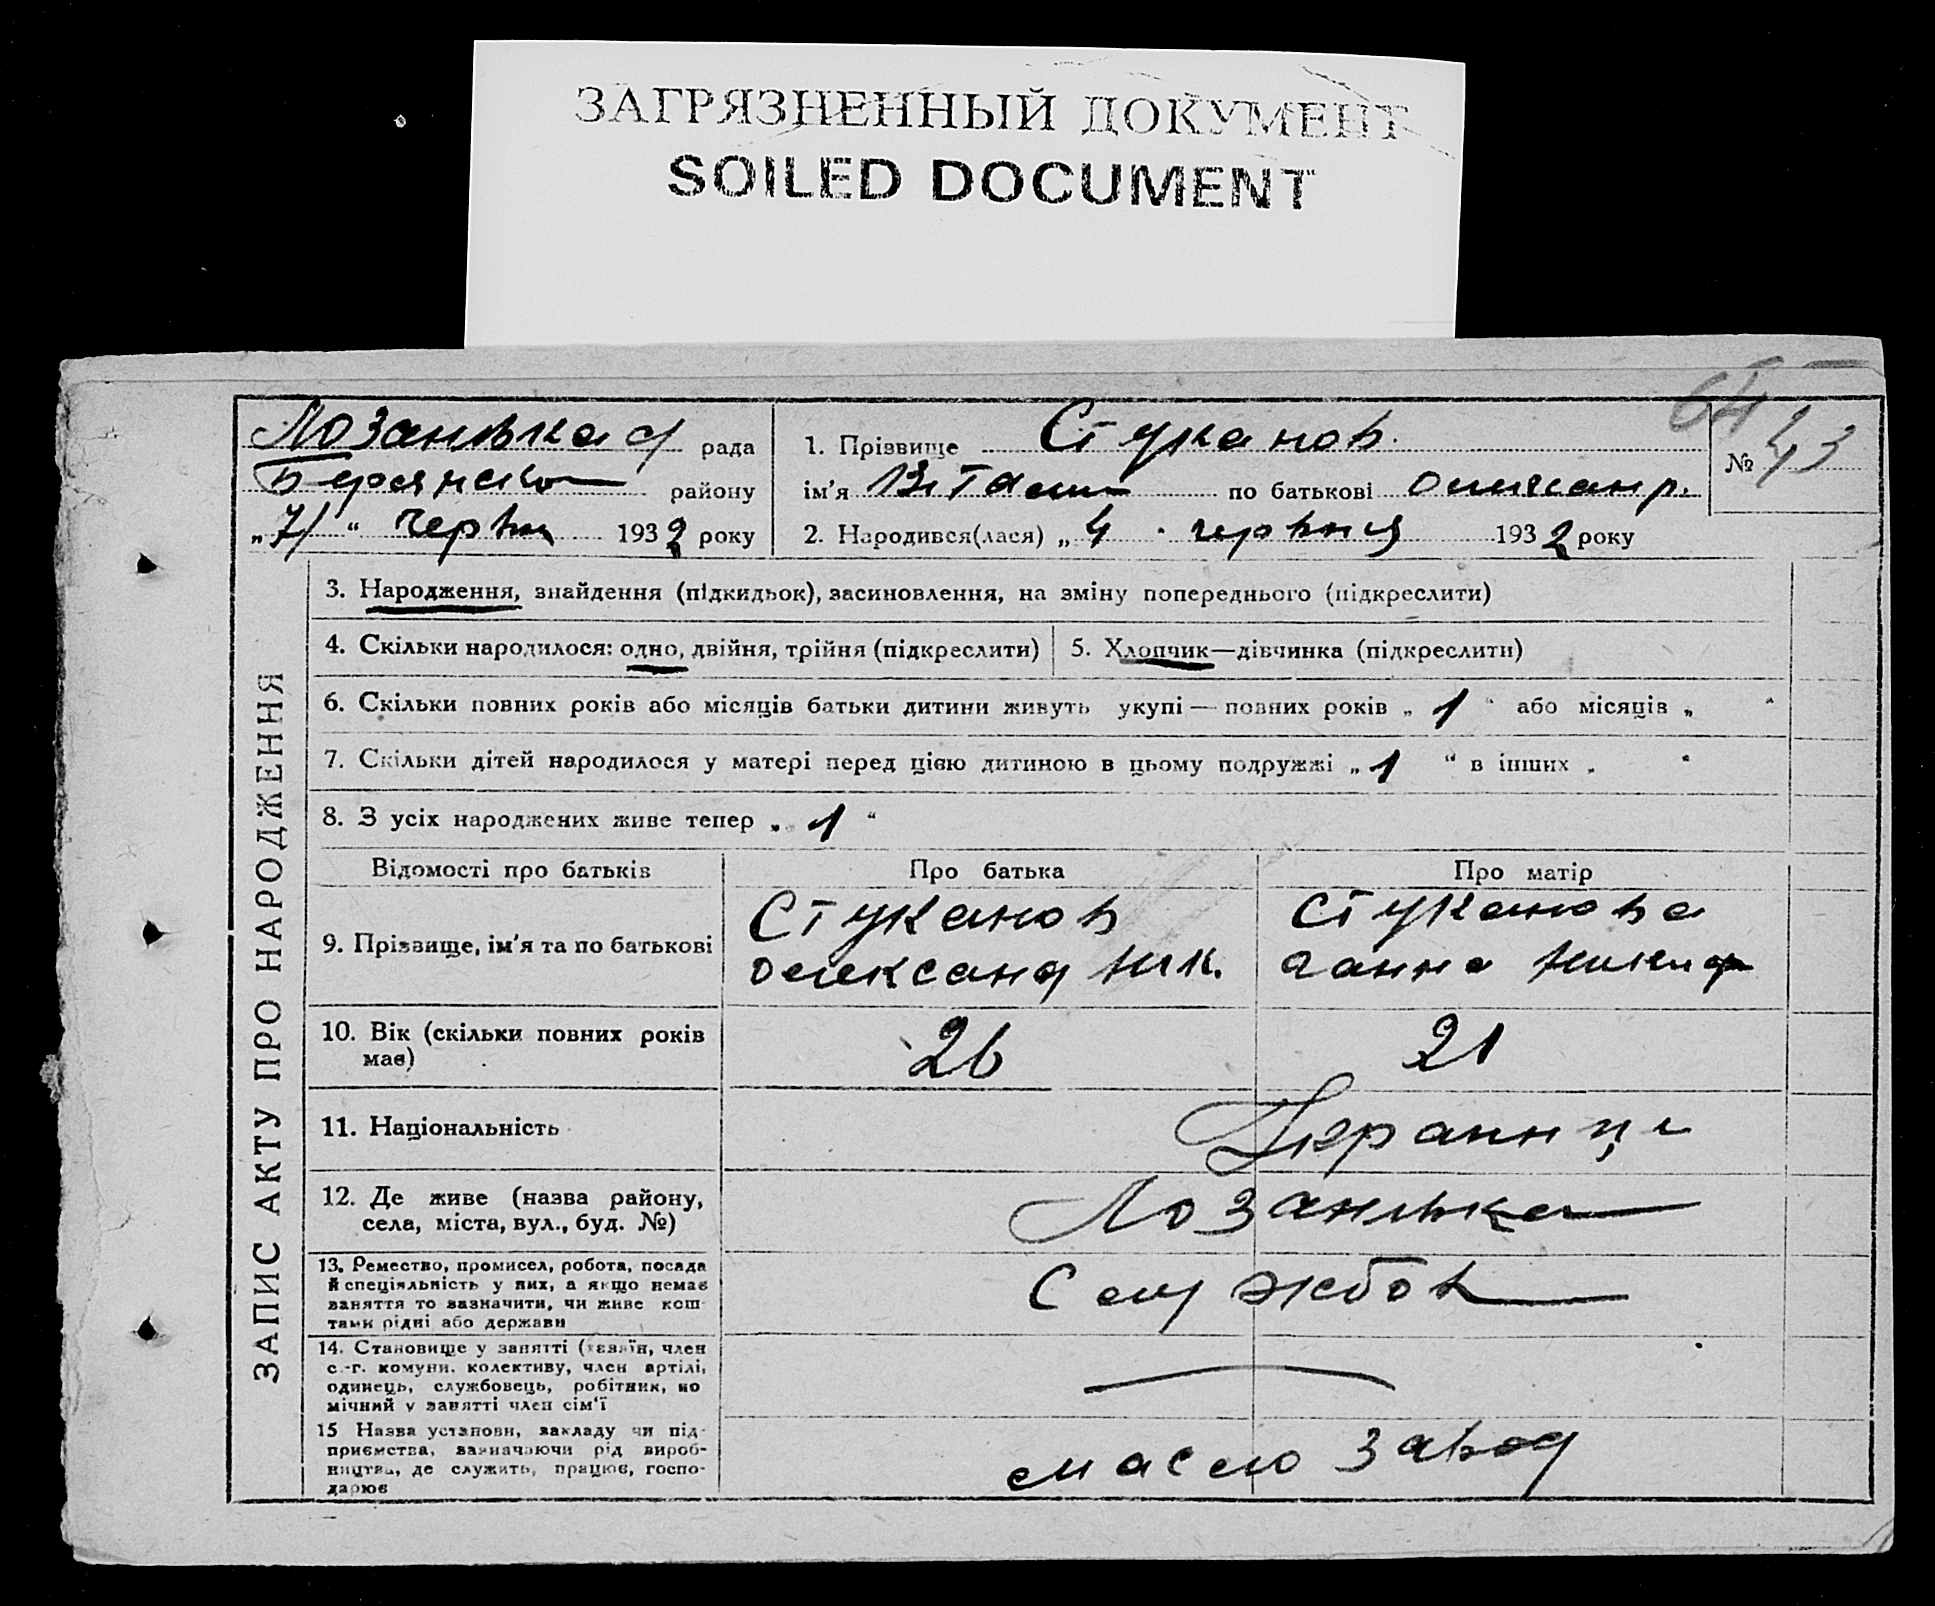 ЗАГРЯЗНЕННЫЙ ДОКУМЕНТ
SOILED DOCUMENT
рада
району
„7“ червн 1932 року
1. Прізвище Стуканов
ім'я Віталий по батькові
2. Народився(лася) „4 червня 1932 року
№ 43
ЗАПИС АКТУ ПРО НАРОДЖЕННЯ
3. Народження, знайдення (підкидьок), засиновлення, на зміну попереднього (підкреслити)
4. Скільки народилося: одно, двійня, трійня (підкреслити)
5. Хлопчик—дівчинка (підкреслити)
6. Скільки повних років або місяців батьки дитини живуть укупі — повних років „ 1 “ або місяців „ “
7. Скільки дітей народилося у матері перед цією дитиною в цьому подружжі „ 1 “ в інших „ “
8. З усіх народжених живе тепер „ 1 “
Відомості про батьків
Про батька
Про матір
9. Прізвище, ім'я та по батькові
Стуканов
Олександ Ник.
Стуканова
Ганна
10. Вік (скільки повних років
має)
26
21
11. Національність
Украинці
12. Де живе (назва району,
села, міста, вул., буд. №)
Лозанівка
13. Ремество, промисел, робота, посада
й спеціяльність у них, а якщо немає
заняття то зазначити, чи живе кош-
тами рідні або держави
Службов
14. Становище у занятті (хазяїн, член
с.-г. комуни, колективу, член артілі,
одинець, службовець, робітник, по
мічний у занятті член сім'ї
15 Назва установи, закладу чи під-
приємства, зазначаючи рід вироб-
ництва, де служить, працює, госпо-
дарює
масло завод